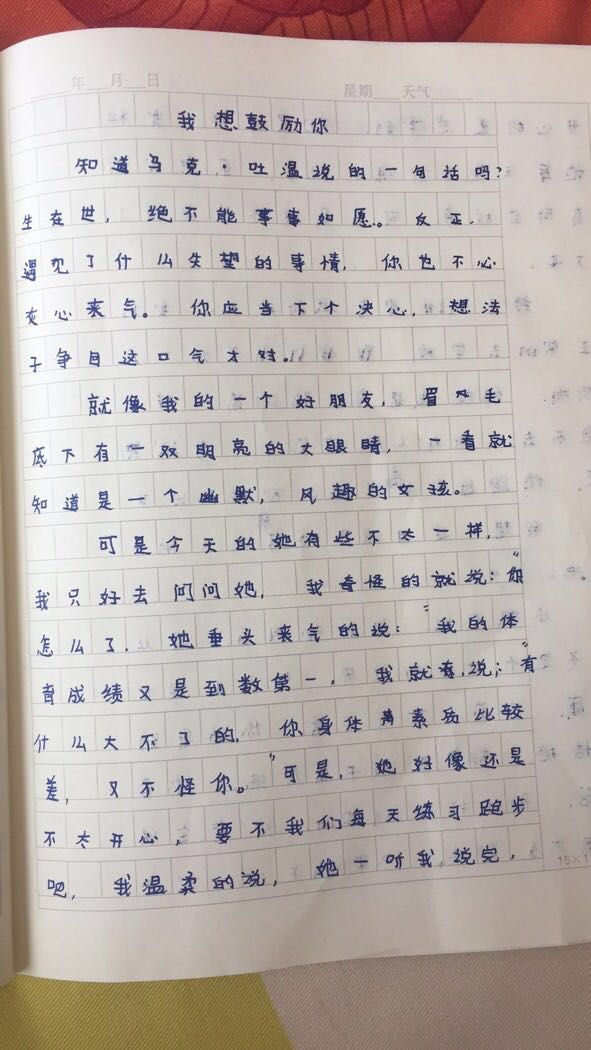 年 月 日 星期 天气
我想鼓励你
知道马克·吐温说的一句话吗?
生在世，绝不能事事如愿。反正，
遇见了什么失望的事情，你也不心
灰心丧气。你应当下个决心，想法
子争回这口气才对。
就像我的一个好朋友，眉毛
底下有一双明亮的大眼睛，一看就
知道是一个幽默，风趣的女孩。
可是今天的她有些不太一样，
我只好去问问她，我奇怪的就说：“你
怎么了”，她垂头丧气的说：“我的体
育成绩又是到数第一，我就说；“有
什么大不了的，你身体素质比较
差，又不怪你。”可是，她好像还是
不太开心，要不我们每天练习跑步
吧，我温柔的说，她一听我说完，